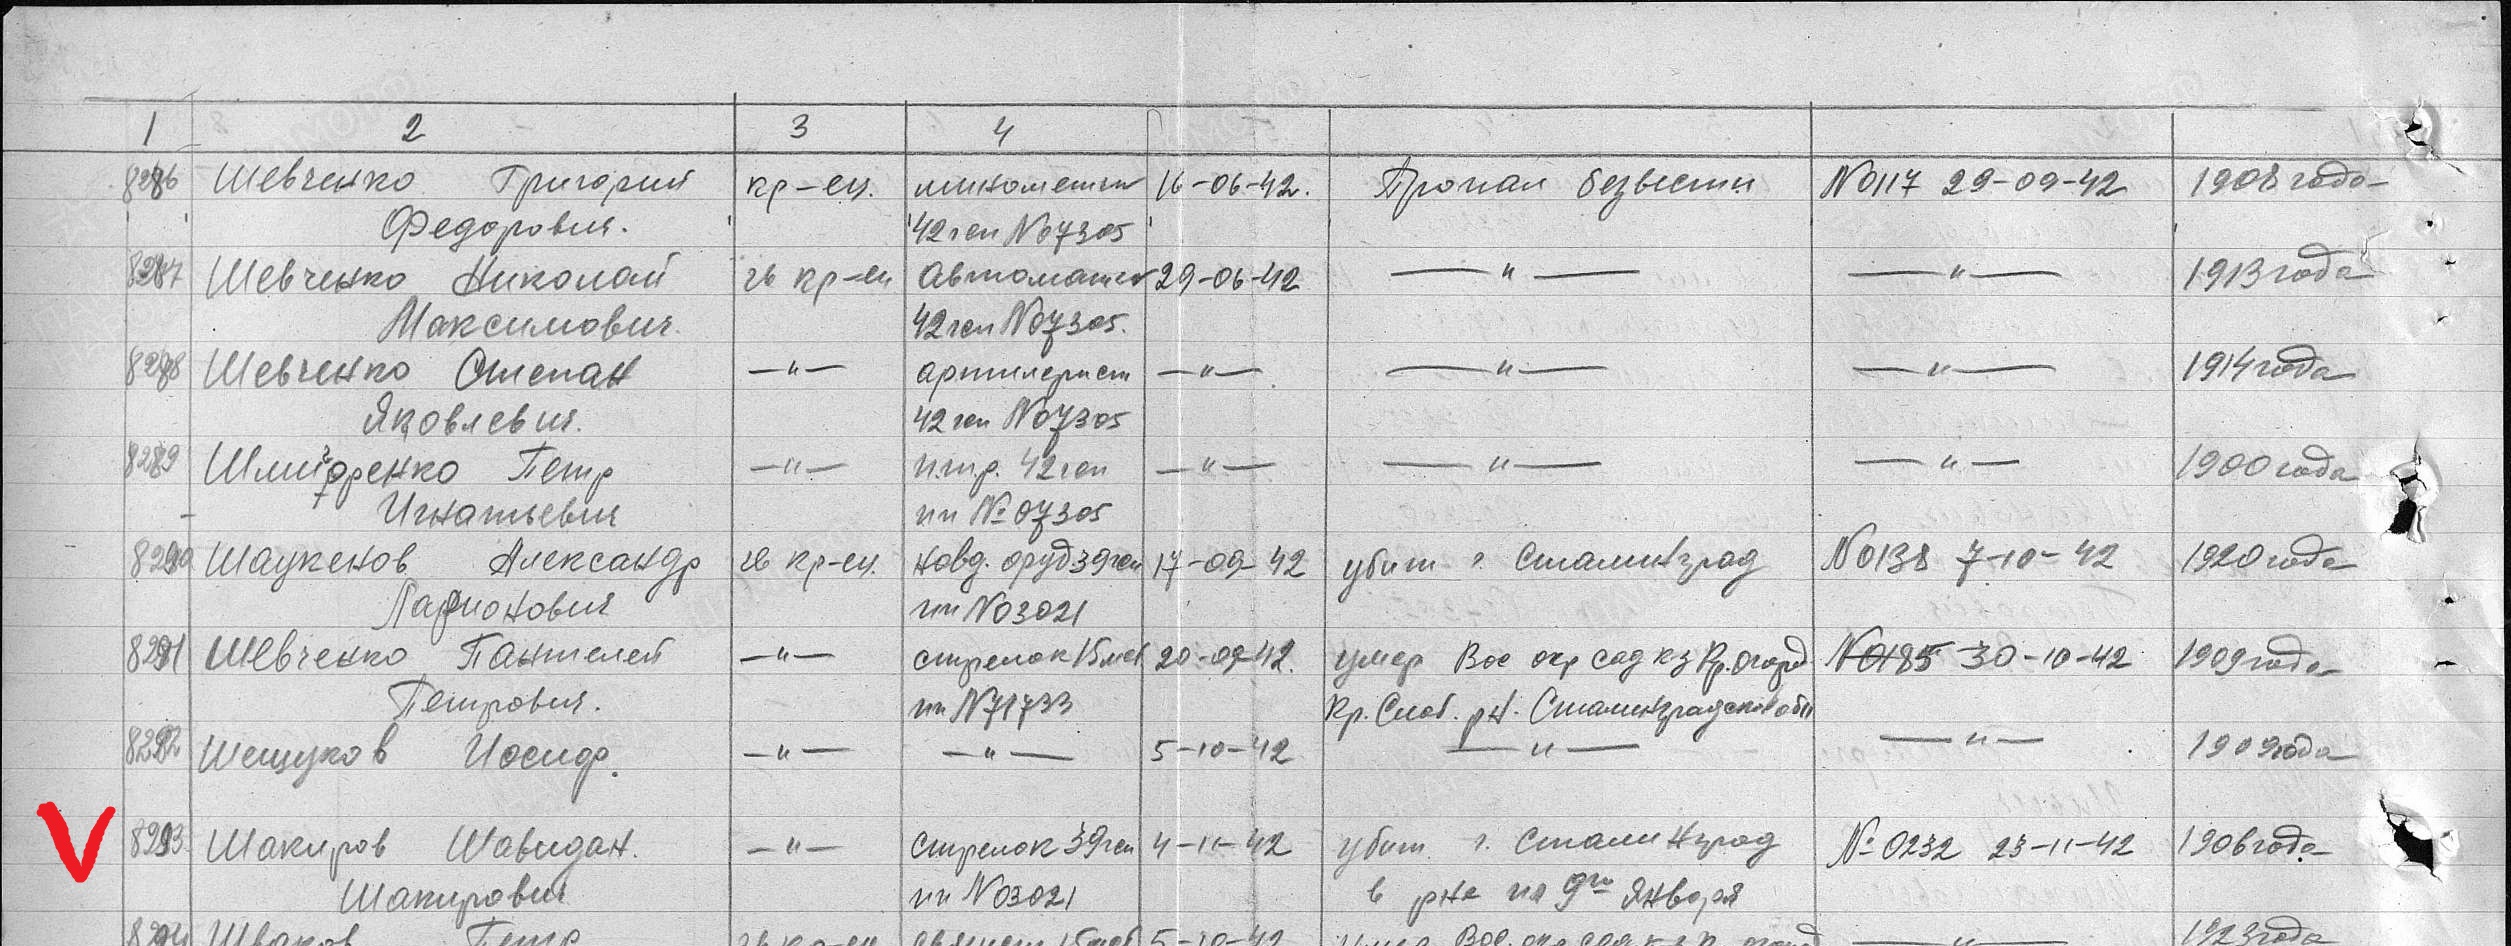 1 2 3 4
8286 Шевченко Григорий кр-ец. минометчик 16-06-42. Пропал безвести №0117 29-09-42 1908 года
Федорович. 42 гсп №07305
8287 Шевченко Николай гв кр-ец Автоматчик 29-06-42 —"— —"— 1913 года
Максимович. 42 гсп №07305.
8288 Шевченко Степан —"— артилерист —"— —"— —"— 1914 года
Яковлевич. 42 гсп №07305
8289 Петр —"— п.т.р. 42 гсп —"— —"— —"— 1900 года
Игнатьевич пп №07305
8290 Шаукенов Александр гв кр-ец. 39 гсп 17-09-42 убит г. Сталинград №0138 7-10-42 1920 года
Ларионович пп №03021
8291 Шевченко Пантелей —"— стрелок 20-09-42. умер №0185 30-10-42 1909 года
Петрович. пп №71733 Кр. Слоб. рн. Сталинградской обл
8292 Шешуков Иосиф. —"— —"— 5-10-42 —"— —"— 1909 года
V 8293 Шакиров Шавидан. —"— стрелок 39 гсп 4-11-42 убит г. Сталинград №0232 23-11-42 1906 года
Шакирович пп №03021 в рне пл 9го Января
8294 Петр гв кр-ец 5-10-42 умер —"— 1923 года